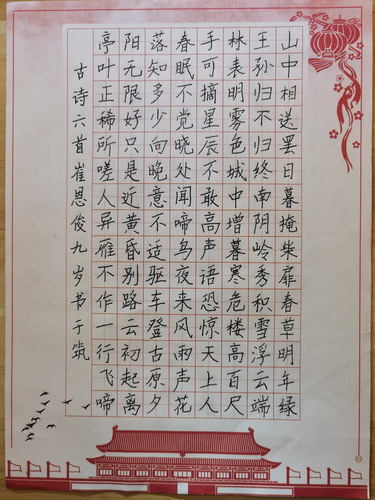 山中相送罢日暮掩柴扉春草明年绿
王孙归不归终南阴岭秀积雪浮云端
林表明雾色城中增暮寒危楼高百尺
手可摘星辰不敢高声语恐惊天上人
春眠不觉晓处闻啼鸟夜来风雨声花
落知多少向晚意不适驱车登古原夕
阳无限好只是近黄昏别路云初起离
亭叶正稀所嗟人异雁不作一行飞啼
古诗六首崔恩俊九岁书于筑